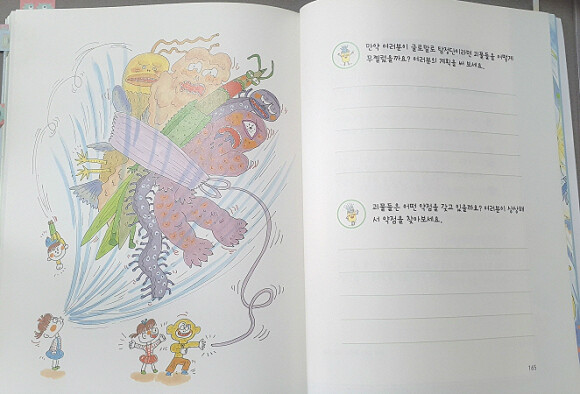 만약 여러분이 글로벌로 탐정단이라면 괴물들을 어떻게
무찔렀을까요? 여러분의 계획을 써 보세요.
괴물들은 어떤 약점을 갖고 있을까요? 여러분이 상상해
서 약점을 찾아보세요.
165